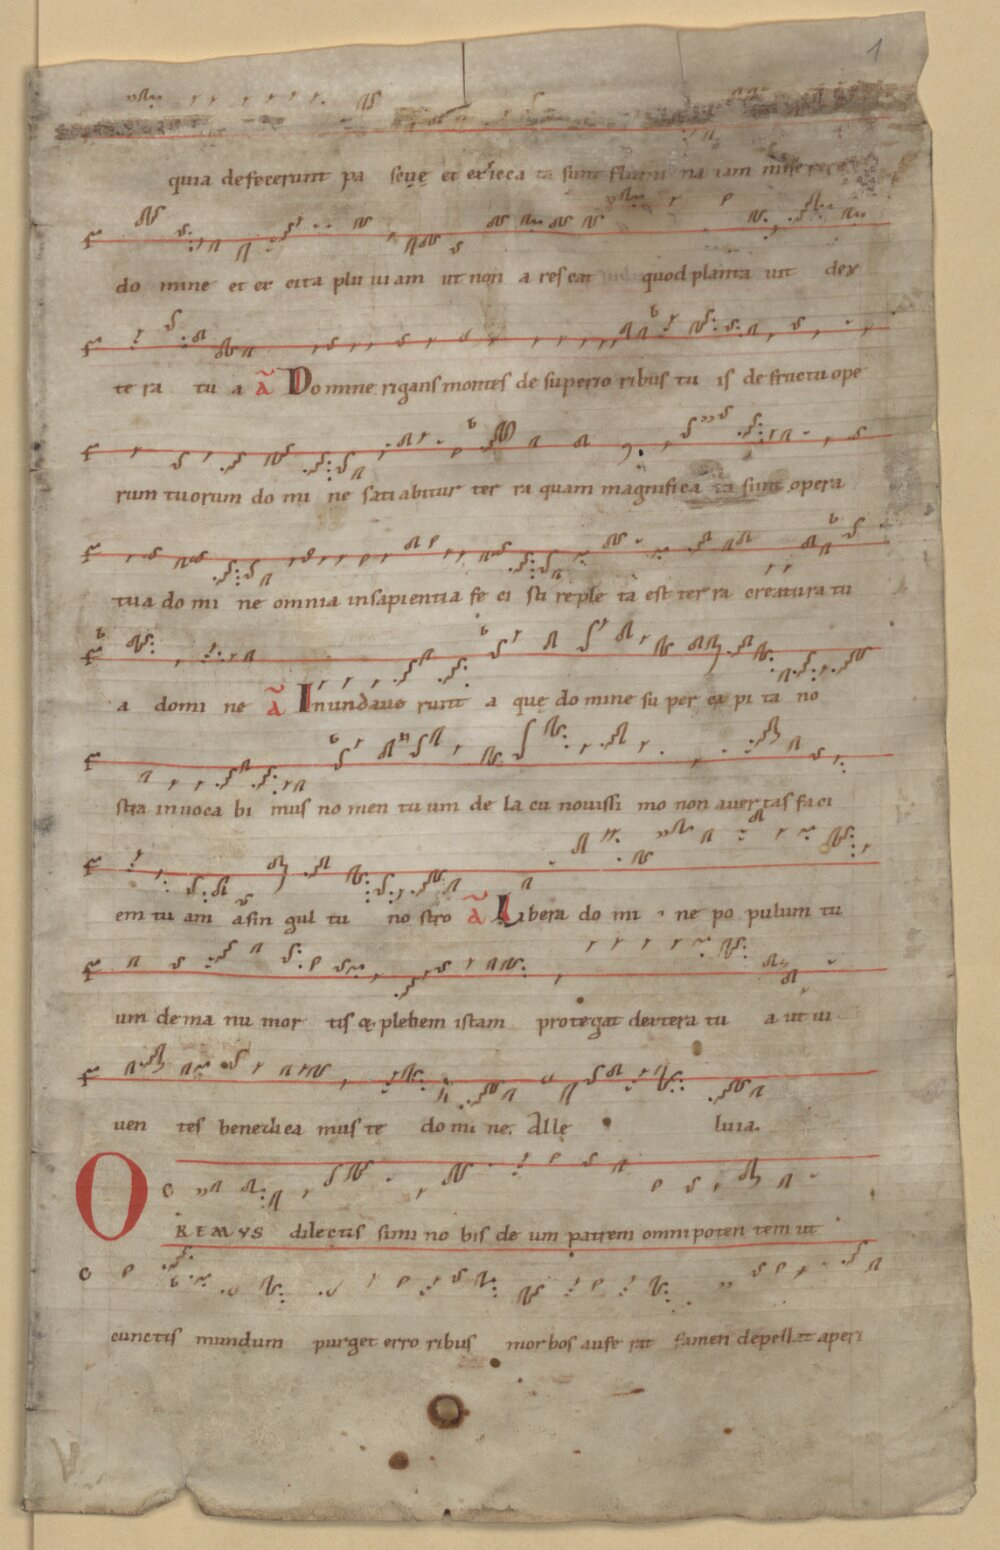 1
quia defecerunt pa scuę et exsicca ta sunt flumi na iam miserere
do mine et ex cita plu uiam ut non a rescat quod planta uit dex
te ra tu a ã Domine rigans montes de superio ribus tu is de fructu ope
rum tuorum do mi ne satiabitur ter ra quam magnifica ta sunt opera
tua do mi ne omnia insapientia fe ci sti reple ta est ter ra creatura tu
a domi ne ã Inundaue runt a quę do mine su per ca pi ta no
stra inuoca bi mus no men tu um de la cu nouissi mo non auertas faci
em tu am a sin gul tu no stro ã Libera do mi ne po pulum tu
um de ma nu mor tis & plebem istam protegat dextera tu a ut ui
uen tes benedica mus te do mi ne. Alle luia.
OREMVS dilectis simi no bis de um patrem omnipoten tem ut
cunctis mundum purget erro ribus morbos aufe rat famem depellat aperi